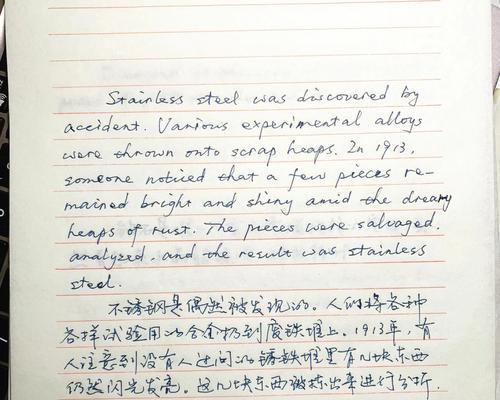 Stainless steel was discovered by
accident. Various experimental alloys
were thrown onto scrap heaps. In 1913,
someone noticed that a few pieces re-
mained bright and shiny amid the dreary
heaps of rust. The pieces were salvaged,
analyzed, and the result was stainless
steel.
不锈钢是偶然被发现的。人们将各种
各样试验用的合金扔到废铁堆上。1913年,有
人注意到没有人过问的锈铁堆里有几块东西
仍然闪光发亮。这几块东西被拣出来进行分析,